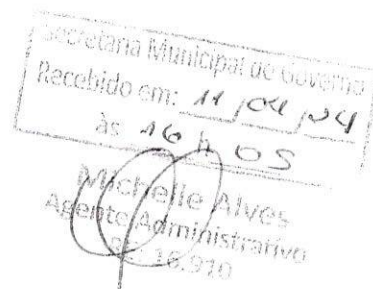 Secretaria Municipal de Governo
Recebido em: 11/04/24
às 16 h 05
Michelle Alves
Agente Administrativo
RE: 16.910